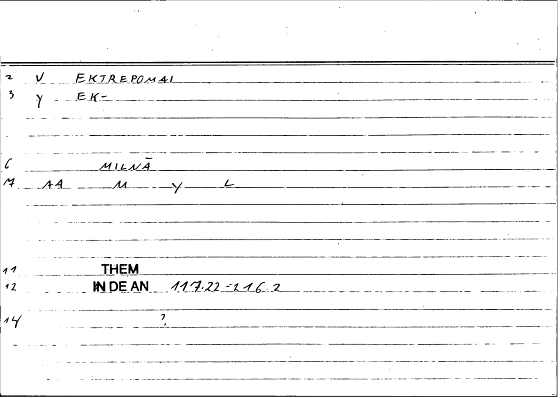 2 V EKTREPOMAI
3 Y EK-
6 MILNĀ
M AA M Y L
11 THEM
12 IN DE AN 117.22-216.2
14 ?